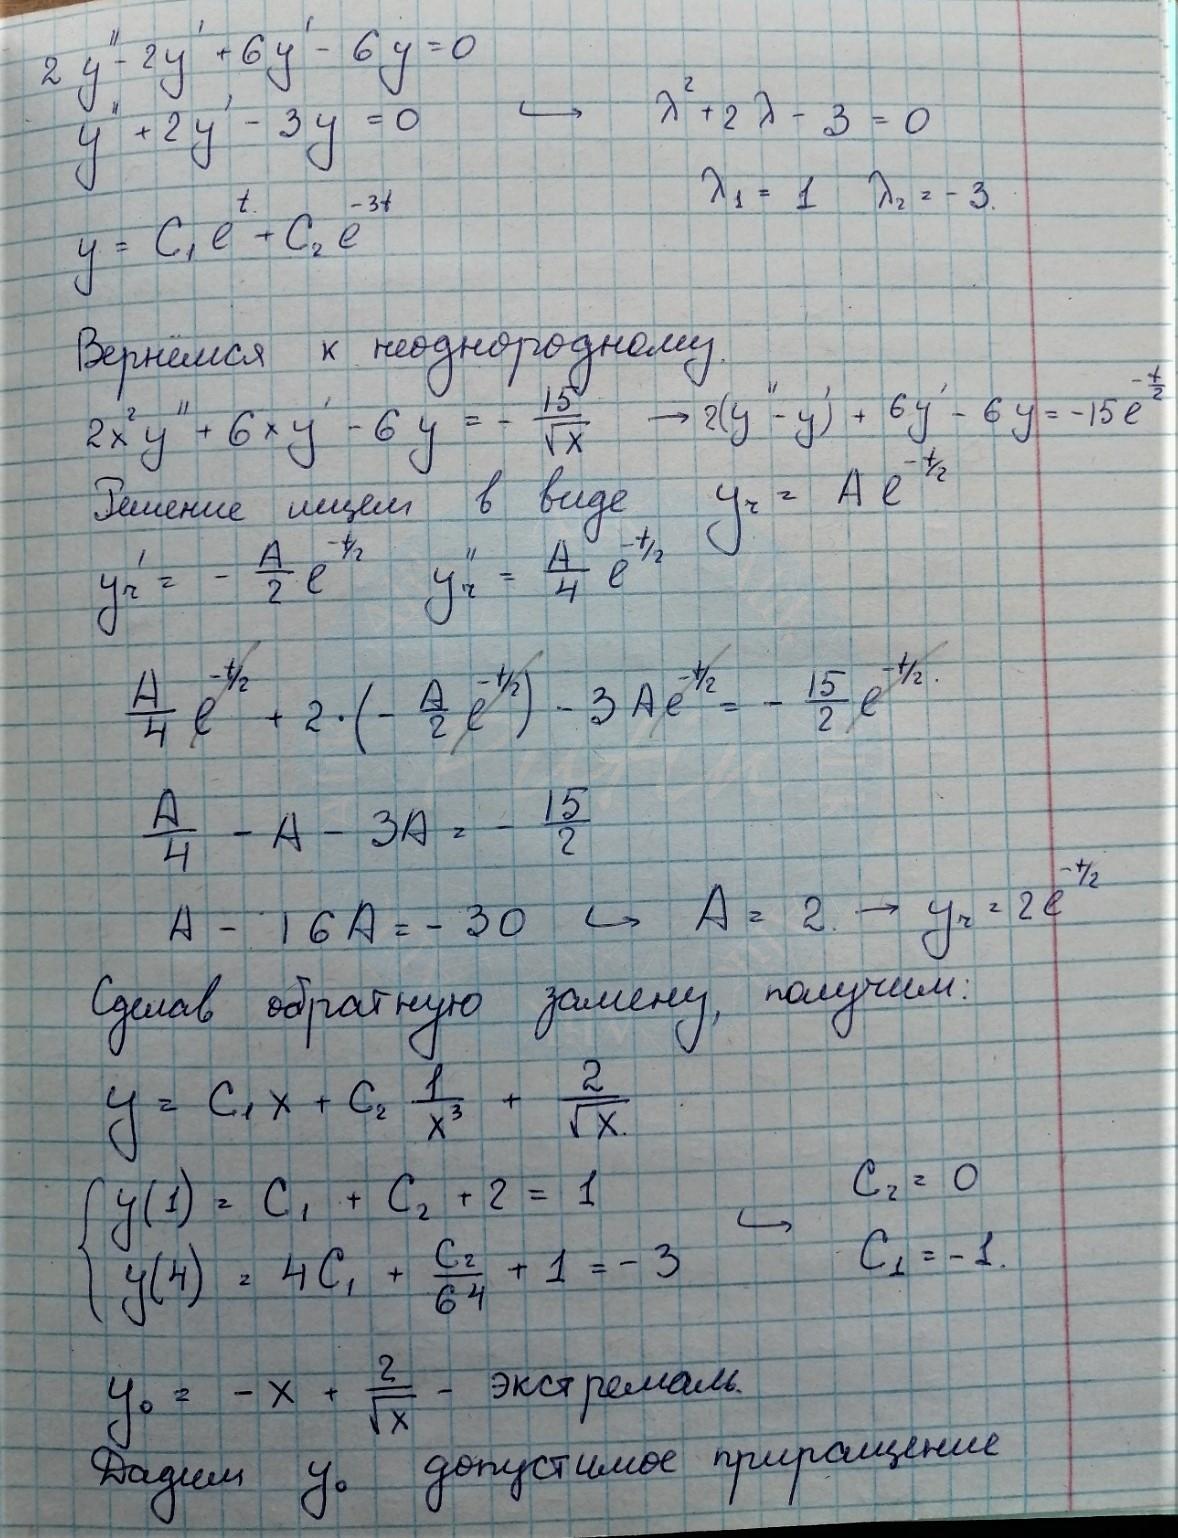 2y'' - 2y' + 6y' - 6y = 0
y'' + 2y' - 3y = 0 ↪ λ² + 2λ - 3 = 0
λ₁ = 1 λ₂ = -3.
y = C₁e^t + C₂e^(-3t)
Вернёмся к неоднородному.
2x²y'' + 6xy' - 6y = - 15/√x → 2(y'' - y') + 6y' - 6y = -15e^(-t/2)
Решение ищем в виде yч = Ae^(-t/2)
yч' = - A/2 e^(-t/2) yч'' = A/4 e^(-t/2)
A/4 e^(-t/2) + 2·(- A/2 e^(-t/2)) - 3Ae^(-t/2) = - 15/2 e^(-t/2).
A/4 - A - 3A = - 15/2
A - 16A = -30 ↪ A = 2. → yч = 2e^(-t/2)
Сделав обратную замену, получим:
y = C₁x + C₂ 1/x³ + 2/√x.
{ y(1) = C₁ + C₂ + 2 = 1 ↪ C₂ = 0
y(4) = 4C₁ + C₂/64 + 1 = -3 C₁ = -1.
y₀ = -x + 2/√x - экстремаль.
Дадим y₀ допустимое приращение